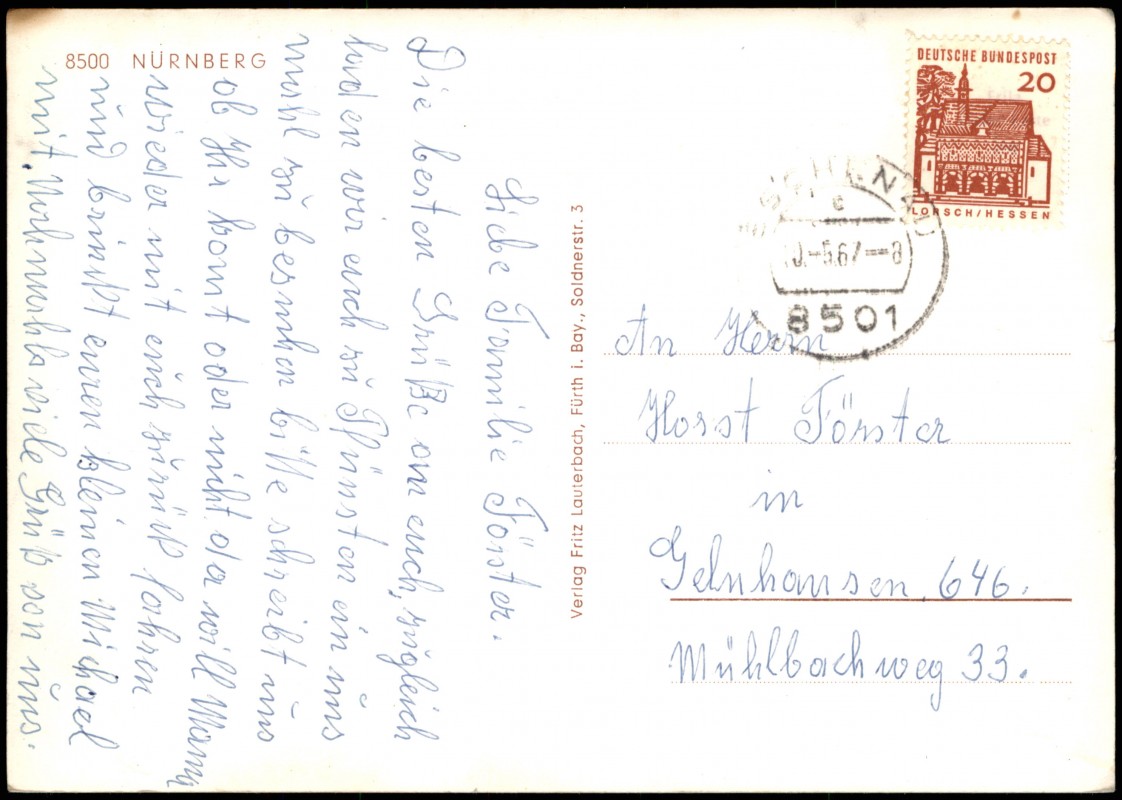 8500 NÜRNBERG
Liebe Familie Förster.
Die besten Grüße an euch, zugleich
laden wir euch zu Pfünsten ein uns
mahl zu besuchen bitte schreibt uns
ob Ihr komt oder nicht da will Mama
wieder mit euch zurück fahren.
und brinkt euren kleinen Michael
mit. Mahls viele Grüße von uns.
Verlag Fritz Lauterbach, Fürth i. Bay., Soldnerstr. 3
DEUTSCHE BUNDESPOST
20
LORSCH/HESSEN
c
.-5.67-8
8501
An Herrn
Horst Förster
in
Gelnhausen. 646.
Mühlbachweg 33.